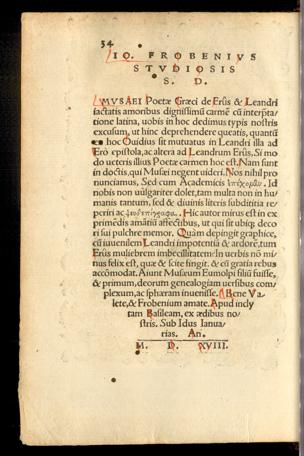 34
IO. FROBENIVS
STVDIOSIS
S. D.
MVSAEI Poetæ Græci de Erûs & Leandri
iactatis amoribus digniſſimũ carmẽ cũ interpta/
tione latina, uobis in hoc dedimus typis noſtris
excuſum, ut hinc deprehendere queatis, quantũ
ex hoc Ouidius ſit mutuatus in Leandri illa ad
Erò epiſtola, ac altera ad Leandrum Erûs, Si mo
do ueteris illius Poetæ carmen hoc eſt. Nam ſunt
in doctis, qui Muſæi negent uideri. Nos nihil pro
nunciamus, Sed cum Academicis ἐπέχομẞν. Id
nobis non uulgariter dolet, tam multa non in hu
manis tantum, ſed & diuinis literis ſubdititia re
periri ac ψευδεπίγραφα. Hic autor mirus eſt in ex
primẽdis amãtiũ affectibus, ut qui ſit ubiq; deco
ri ſui pulchre memor. Quàm depingit graphice,
cũ iuuenilem Leandri impotentiã & ardorẽ, tum
Erûs muliebrem imbecillitatem: In uerbis nõ mi
nus felix eſt, quæ & ſcite fingit, & cũ gratia rebus
accõmodat. Aiunt Muſæum Eumolpi filiũ fuiſſe,
& primum, deorum genealogiam uerſibus com/
plexum, ac ſphæram inueniſſe. Bene Va/
lete, & Frobenium amate. Apud incly
tam Baſileam, ex ædibus no/
ſtris. Sub Idus Ianua/
rias. An.
M. D. XVIII.